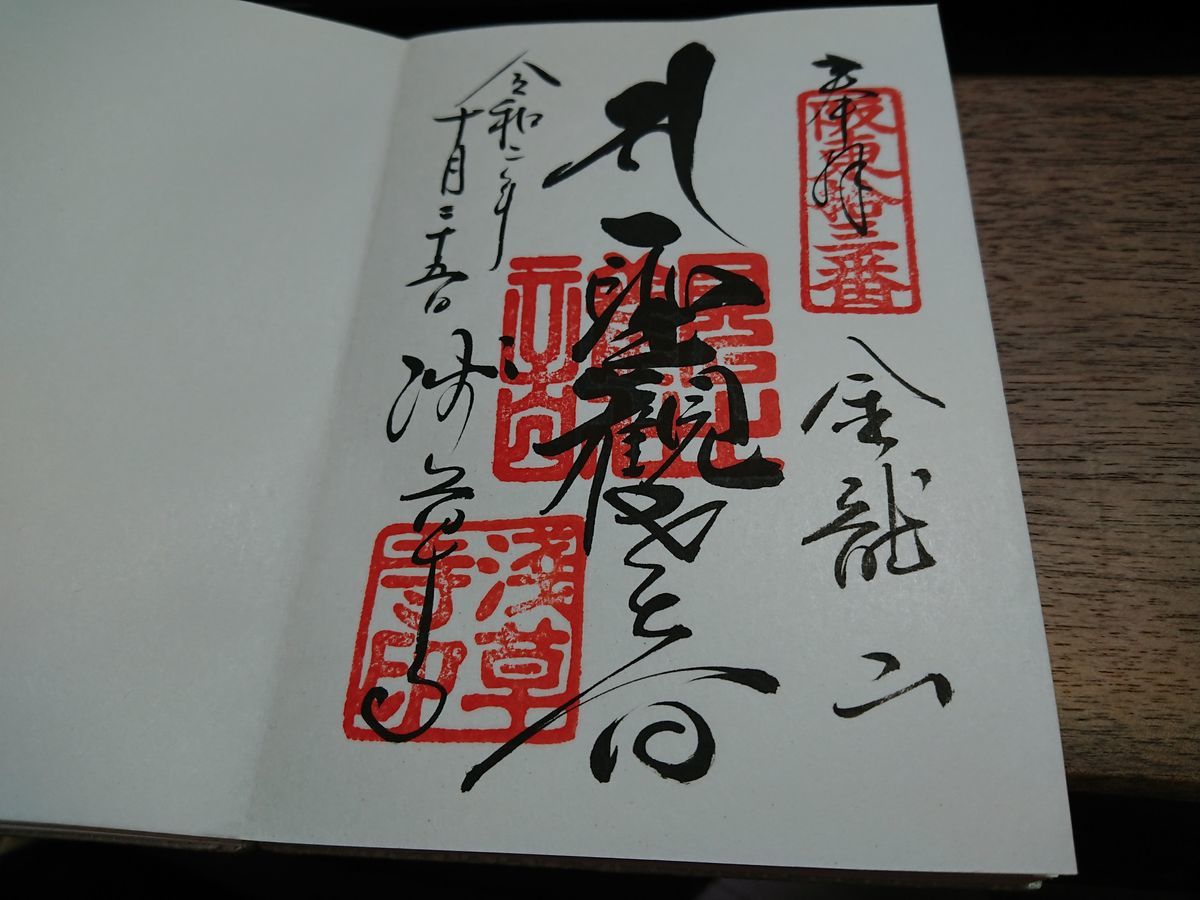 奉拝
阪東拾三番
金龍山
聖觀世音
令和二年
十月二十五日
浅草寺
淺草寺印